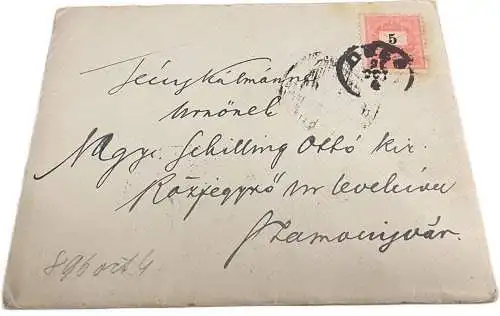 5
DÉES
Tény Kálmánné
Urnőnek
Nagys. Schilling Ottó kir.
Közjegyző Ur levelével
Szamosujvár.
896 oct. 4